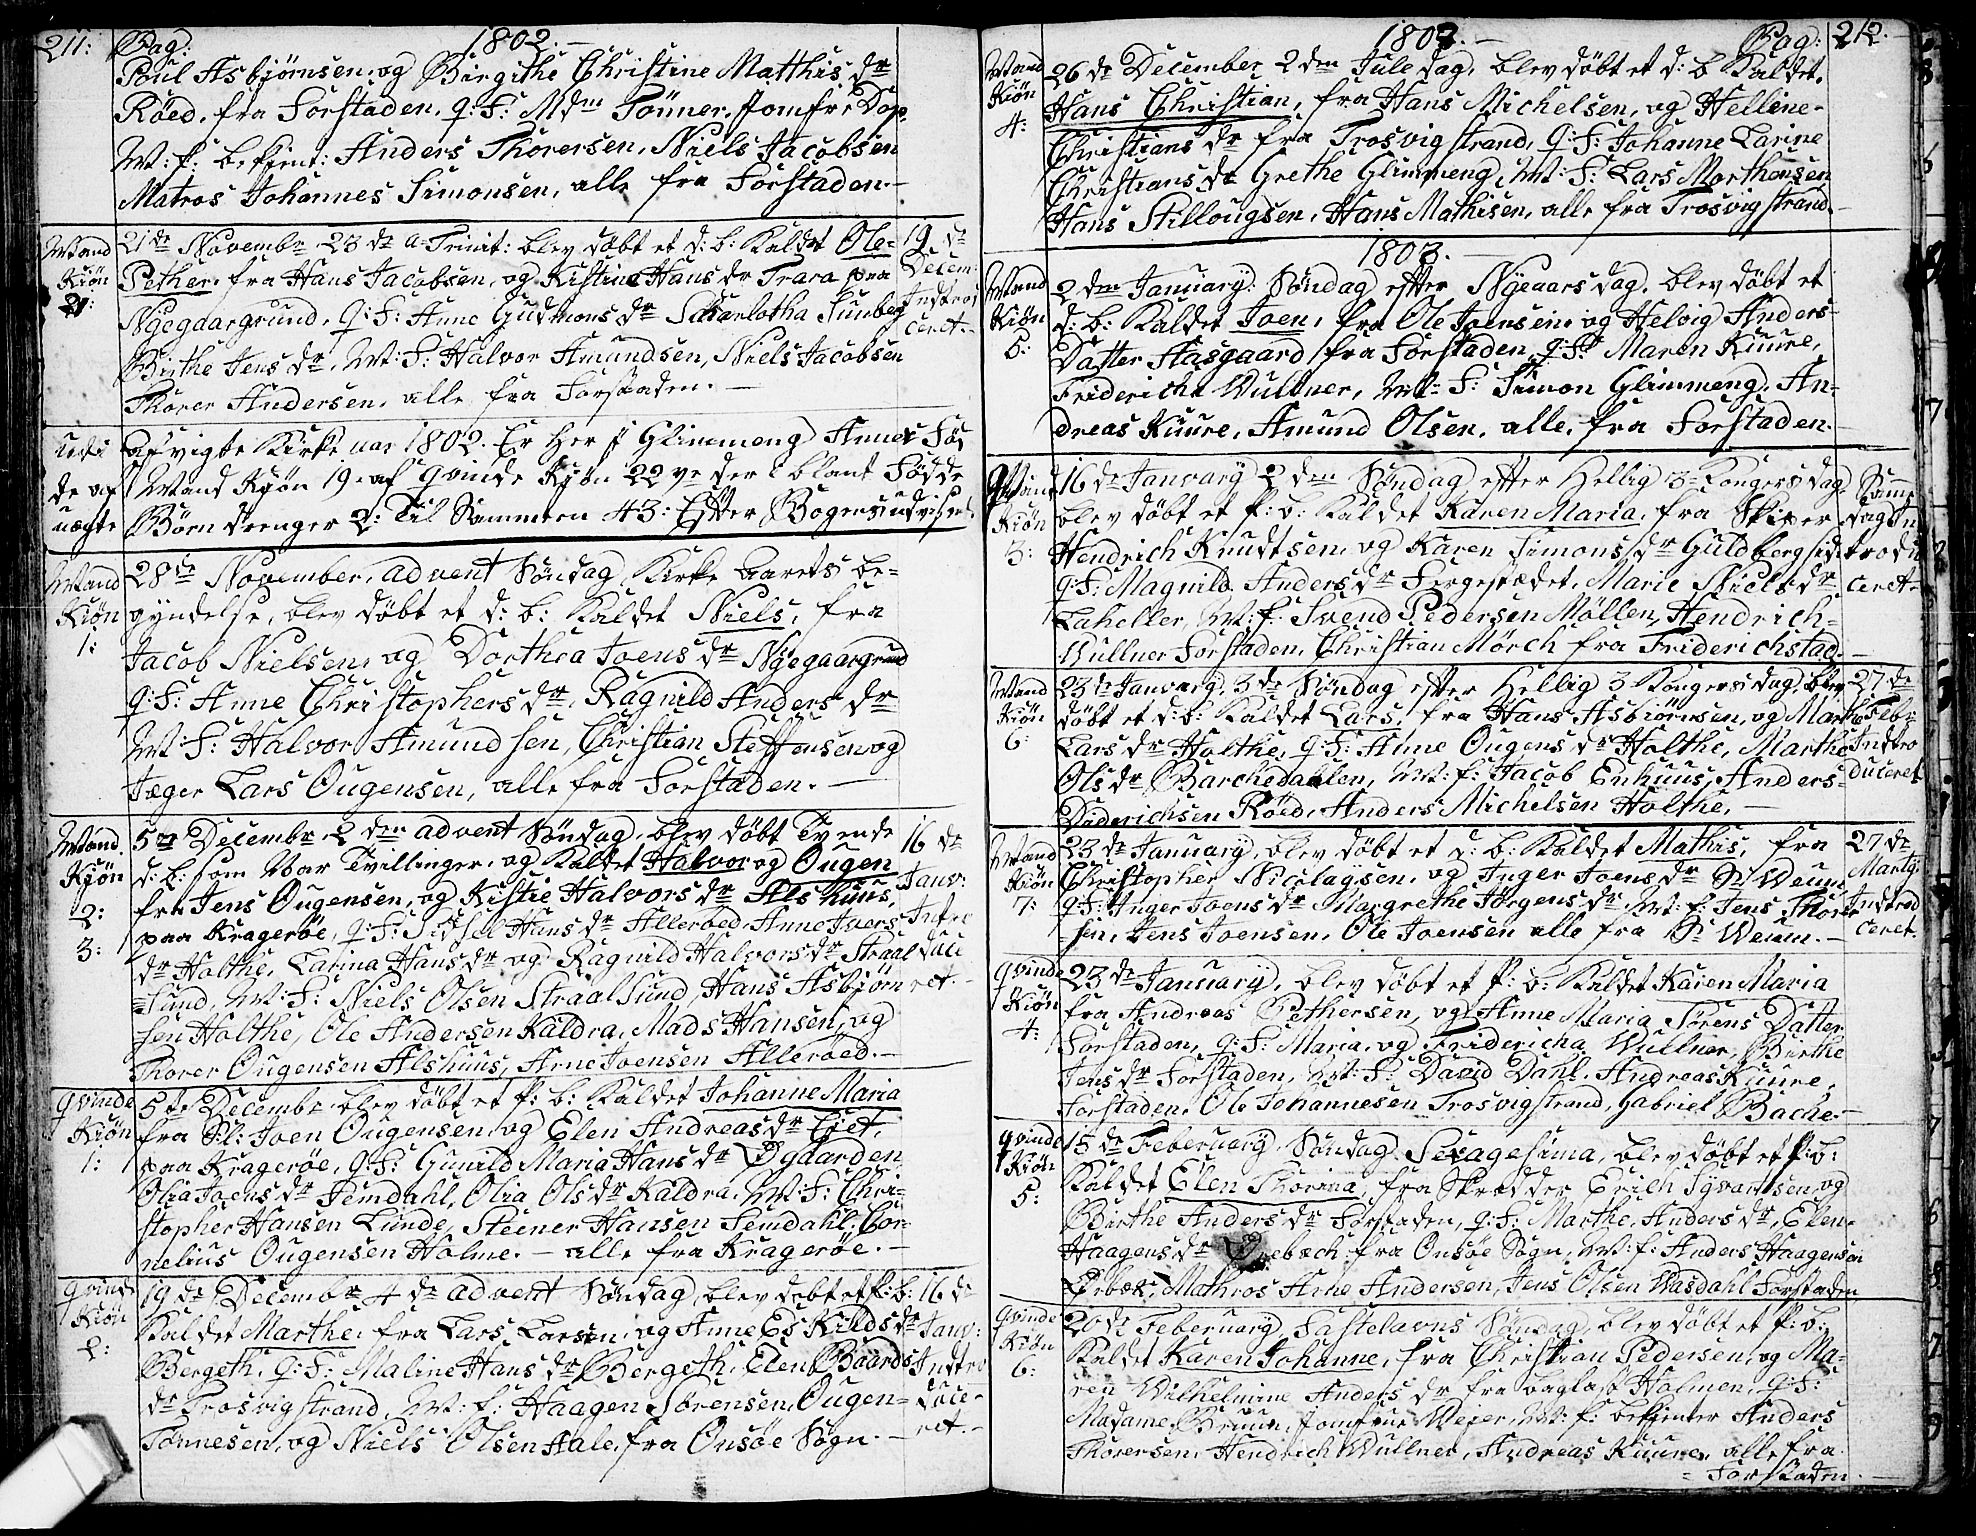 211: Pag: 1802.
Poul Asbjørnsen, og Birgithe Christine Matthis dr
Røed, fra Forstaden, q: F: Mdm Tønner, Jomfru Dop,
M: f: Anders Thorersen, Niels Jacobsen
Matros Johannes Simonsen, alle fra Forstaden.
Mand
Kiøn
21:
21de Novembr 23de a Trinit: blev døbt et d: b: Kaldet Ole-
Pether, fra Hans Jacobsen, og Kistine Hans dr Trara paa
Nyegaargrund, q: F: Anne Gudmons dr Scharlotha Sunberg
Birthe Jens dr, M: F: Halvor Amundsen, Niels Jacobsen
Thorer Andersen, alle fra Forstaden.
19de
Decem:
Indtrod
ceret
udi
de af
uægte
afvigte Kirke aar 1802. Er her i Glimmeng Annex Fød
Mand Kjøn 19. af qvinde Kjøn 22 der i blant Fødde
Børn drenger 2: Til Sammen 43: Efter Bogens udvisende
Mand
Kiøn
1:
28de November, advent Søndag, Kirke Aarets be-
gyndelse, blev døbt et d: b: Kaldet Niels, fra
Jacob Nielsen, og Dorthea Joens dr Nyegaargrund
q: F: Anne Christophers dr, Ragnild Anders dr
M: F: Halvor Amundsen, Christian Steffensen og
Jæger Lars Ougensen, alle fra Forstaden.
Mand
Kjøn
2:
3:
5te Decembr 2den advent Søndag, blev døbt Tvende
d: b: som Var Tvillinger, og Kaldet Halvor og Ougen
fra Jens Ougensen, og Kistie Halvors dr Alshuus,
paa Kragerøe, q: F: Sidsel Hans dr Allerøed, Anne Ivers
dr Holthe, Catrina Hans dr og Ragnild Halvors dr Straal
=Sund, M: F: Niels Olsen Straalsund, Hans Asbjørn
sen Holthe, Ole Andersen Kaldra, Mads Hansen, og
Thorer Ougensen Alshuus, Arne Joensen Allerøed.
16de
Janv:
Intro
duce
ret.
qvinde
Kiøn
1:
5te Decembr blev døbt et p: b: Kaldet Johanne Maria
fra Sl: Joen Ougensen, og Elen Andreas dr Liet,
paa Kragerøe, q: F: Gunild Maria Hans dr Øgaarden
Olia Joens dr Femdahl, Olia Ols dr Kaldra, M: F: Chri-
stopher Hansen Lunde, Steener Hansen Femdahl, Cor-
nelius Ougensen Holme. - alle fra Kragerøe.
qvinde
Kiøn
2:
19de Decembr 4de advent Søndag, blev døbt et p: b:
Kaldet Marthe, fra Lars Larsen, og Anne Es Kilds dr
Bergeth, q: F: Maline Hans dr Bergeth, Elen Baards
dr Trosvigstrand, M: f: Haagen Sørensen, Ougen-
Tønnesen, og Niels Olsen Hale, fra Onsøe Sogn.
16de
Janv:
Indtro
duce-
ret.
1802. Pag: 212.
Mand
Kiøn
4:
26de December 2den Jule dag, blev døbt et d: b Kaldet
Hans Christian, fra Hans Michelsen, og Hellene-
Christians dr fra Trosvigstrand, q: F: Johanne Larine
Christians dr Grethe Glimmeng, M: F: Lars Morthensen
Hans Stillougsen, Hans Mathisen, alle fra Trosvigstrand.
1803.
Mand
Kiøn
5:
2den January: Søndag efter Nyeaars dag, blev døbt et
d: b: Kaldet Joen, fra Ole Joensen, og Helvig Anders-
Datter Aasgaard fra Forstaden, q: F: Maren Kuure,
Fridericha Wullner, M: F: Simon Glimmeng, An-
dreas Kuure, Amund Olsen, alle fra Forstaden.
Qvinde
Kiøn
3:
16de January 2den Søndag efter Hellig 3 Kongers dag,
blev døbt et p: b: Kaldet Karen Maria, fra Skiper
Hendrich Knudtsen, og Karen Simons dr Guldbergsi
q: F: Magnild Anders dr Fergestædet, Marie Niels dr
Laheller, M: f: Svend Pedersen Møllen, Hendrich-
Wullner Forstaden, Christian Mørch fra Friderichstad.
Sam
dag In
trodu
ceret
Mand
Kiøn
6:
23de January, 3de Søndag efter Hellig 3 Kongers dag, blev
døbt et d: b: Kaldet Lars, fra Hans Asbiørnsen, og Marthe
Lars dr Holthe, q: F: Anne Ougens dr Holthe, Marthe
Ols dr Barchedahlen, M: f: Jacob Enhuus, Anders-
Diderichsen Røed, Anders Michelsen Holthe.
27de
Febr
Indtro
duceret
Mand
Kiøn
7:
23de January, blev døbt et d: b: Kaldet Mathis, fra
Christopher Nicolaysen, og Inger Joens dr Sr Weum
q: F: Inger Joens dr Margrethe Jørgens dr M: f: Jens Thorer
sen, Jens Joensen, Ole Joensen alle fra Sr Weum.
27de
Marty
Indtrod
ceret.
qvinde
Kiøn
4:
23de January, blev døbt et p: b: Kaldet Karen Maria
fra Andreas Pethersen, og Anne Maria Sørens Datter
Forstaden, q: F: Maria, og Fridericha Wullner, Birthe
Jens dr Forstaden, M: F: David Dahl, Andreas Kuure,
Forstaden, Ole Johannesen Trosvigstrand, Gabriel Bache.
qvinde
Kiøn
5:
13de February, Søndag Sexagesima, blev døbt et p: b:
Kaldet Elen Thorina, fra Skrædder Erich Syvartsen, og
Birthe Anders dr Forstaden, q: F: Marthe Anders dr, Elen-
Haagens dr Ørebæch fra Onsøe Sogn, M: f: Anders Haagensen
Ørbæk, Mathros Arne Andersen, Jens Olsen Wasdahl Forstaden
qvinde
Kiøn
6:
20de February, Fastelavns Søndag, blev døbt et p: b:
Kaldet Karen Johanne, fra Christian Pedersen, og Ma-
ren Wilhelmine Anders dr fra Baglast Holmen, q: F:
Madame Bruun, Jomfrue Meier, M: f: Anders
Thorersen, Hendrich Wullner, Andreas Kuure, alle fra
= Forstaden.